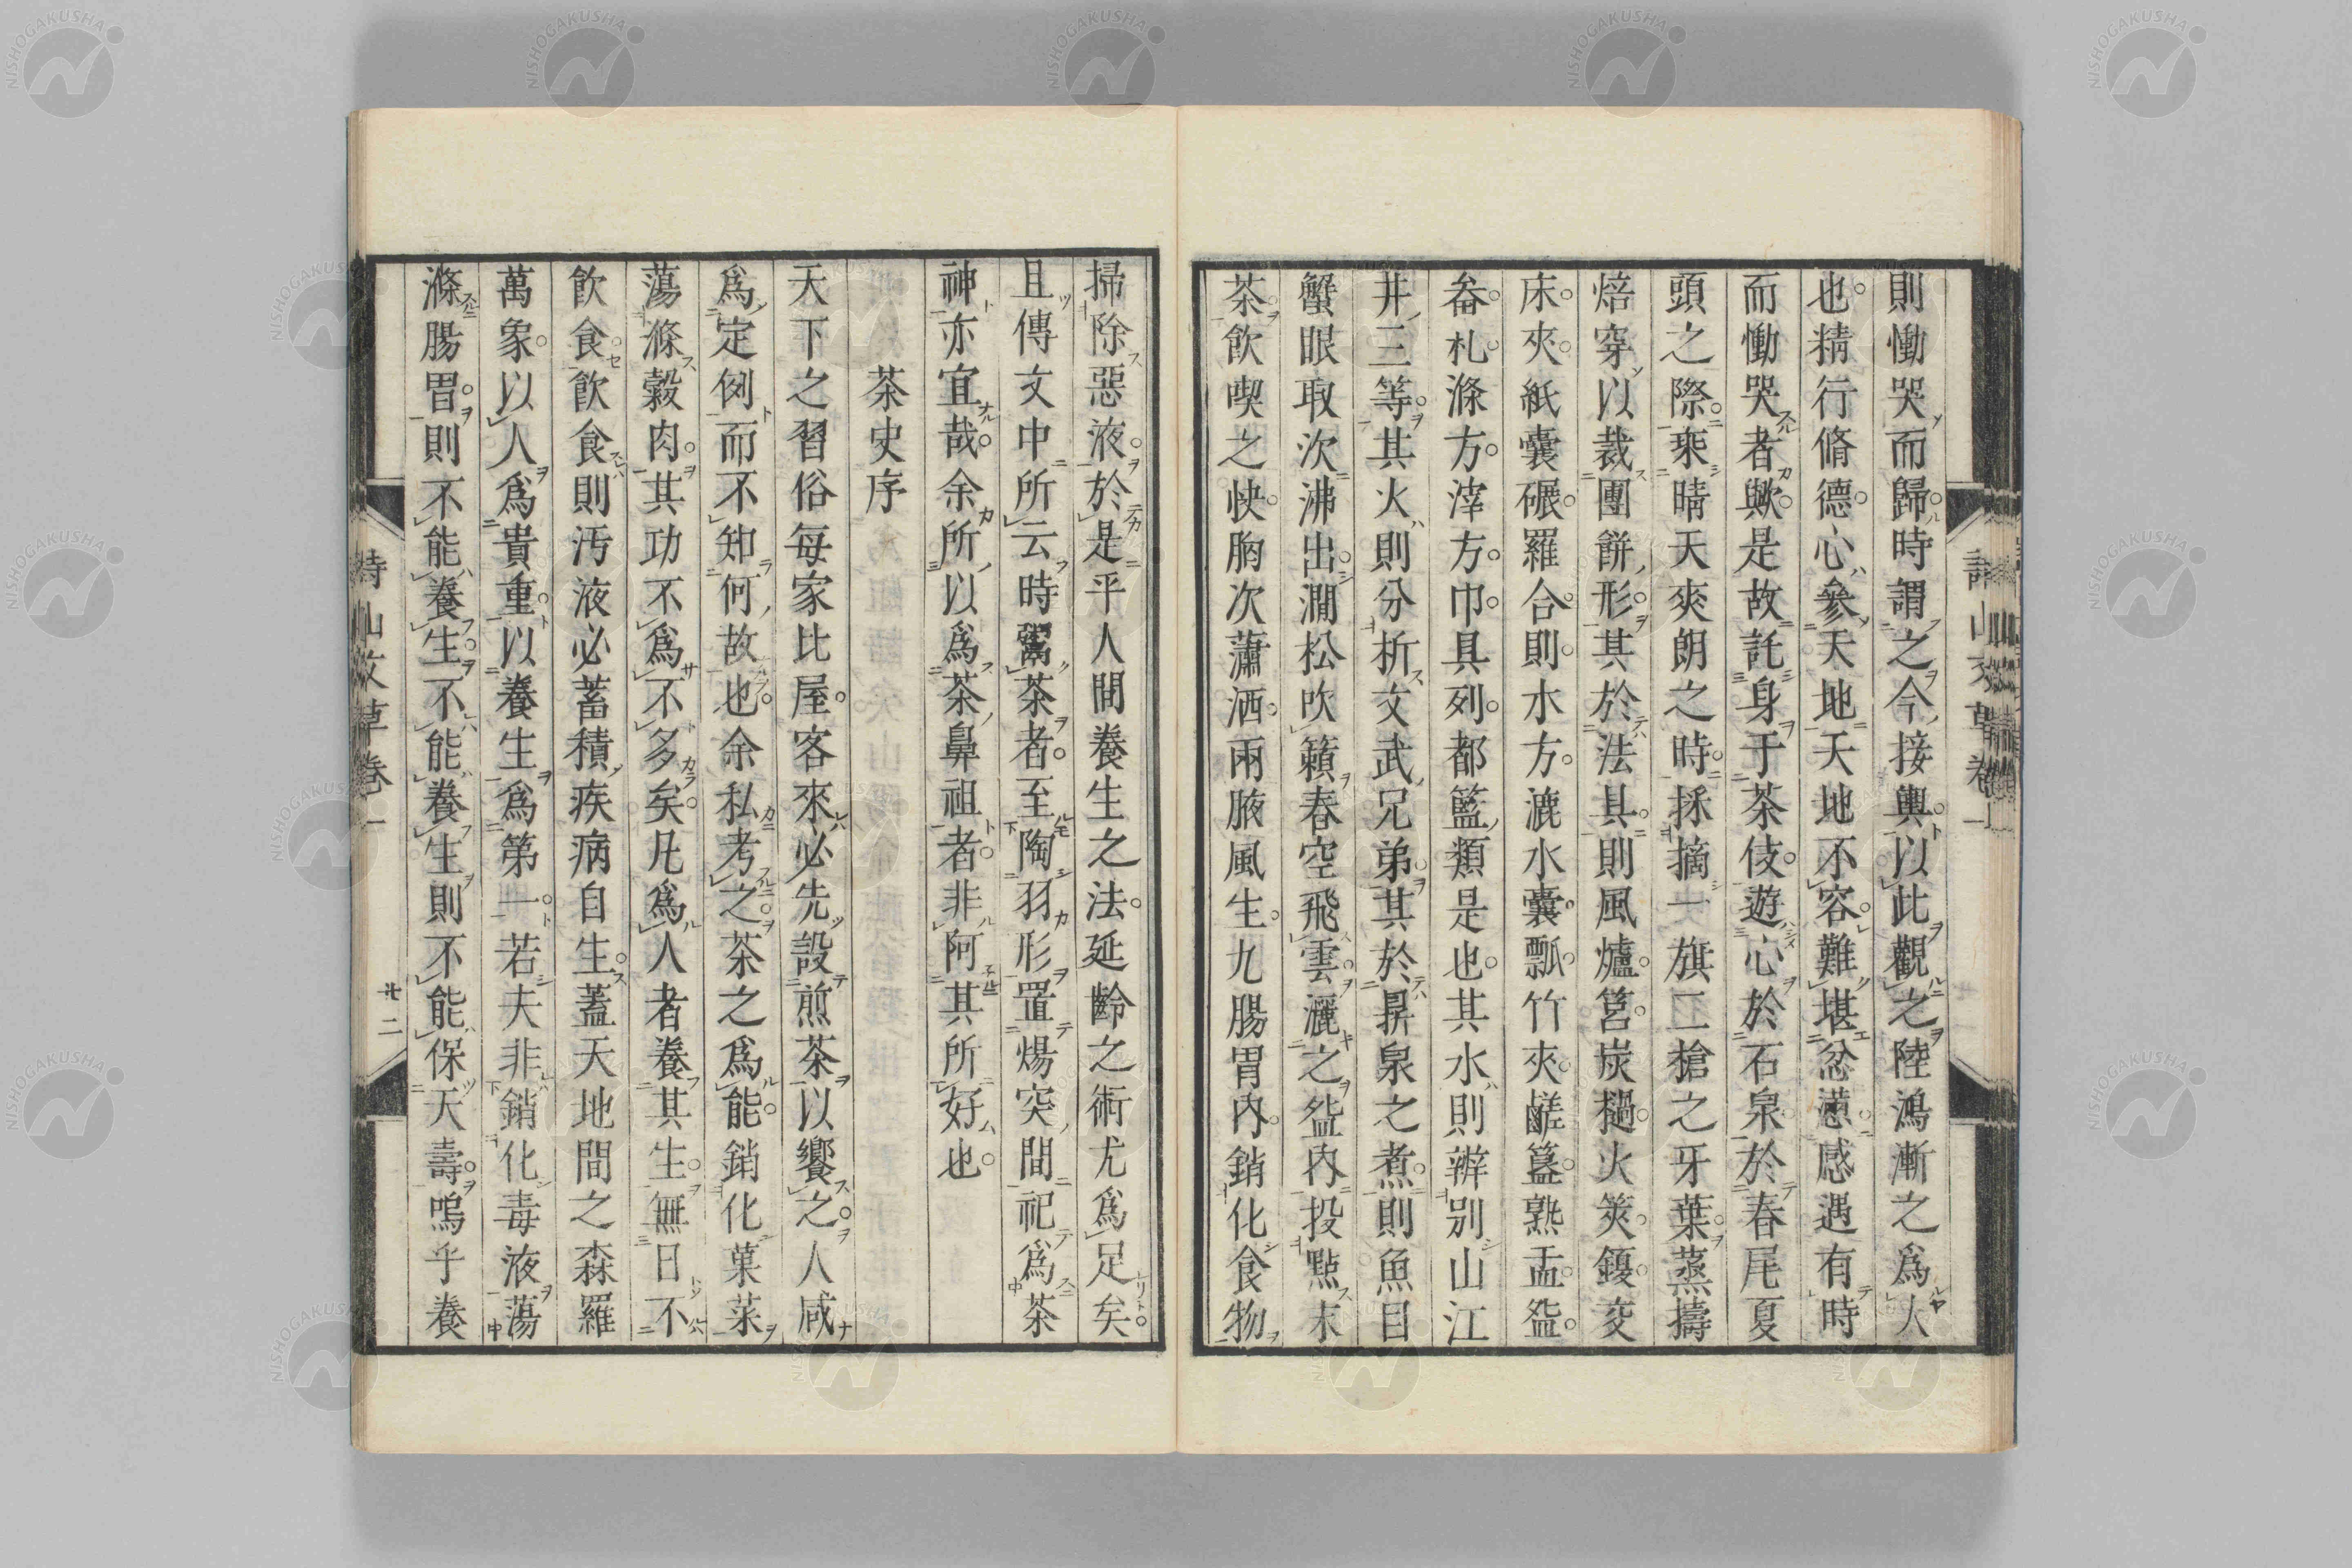 則慟哭而歸時謂之今接輿以此觀之陸鴻漸之爲人
也精行脩德心參天地天地不容難堪忿懣感遇有時
而慟哭者歟是故託身于茶伎遊心於石泉於春尾夏
頭之際乘晴天爽朗之時採摘一旗二槍之牙葉蒸擣
焙穿以裁團餅形其於法具則風爐筥炭檛火筴鍑交
床夾紙囊碾羅合則水方漉水囊瓢竹夾鹺簋熟盂盌
畚札滌方滓方巾具列都籃類是也其水則辨別山江
井三等其火則分析文武兄弟其於鼎泉之煮則魚目
蟹眼取次沸出澗松吹籟春空飛雲灑之盌內投點末
茶飲喫之快胸次蕭洒兩腋風生九腸胃內銷化食物
掃除惡液於是乎人間養生之法延齡之術尤爲足矣
且傳文中所云時鬻茶者至陶羽形置煬突間祀爲茶
神亦宜哉余所以爲茶鼻祖者非阿其所好也
茶史序
天下之習俗每家比屋客來必先設煎茶以饗之人咸
爲定例而不知何故也余私考之茶之爲能銷化菓菜
蕩滌穀肉其功不爲不多矣凡爲人者養其生無日不
飲食飲食則汚液必蓄積疾病自生蓋天地間之森羅
萬象以人爲貴重以養生爲第一若夫非銷化毒液蕩
滌腸胃則不能養生不能養生則不能保天壽嗚乎養
詩仙文草卷一
廿二